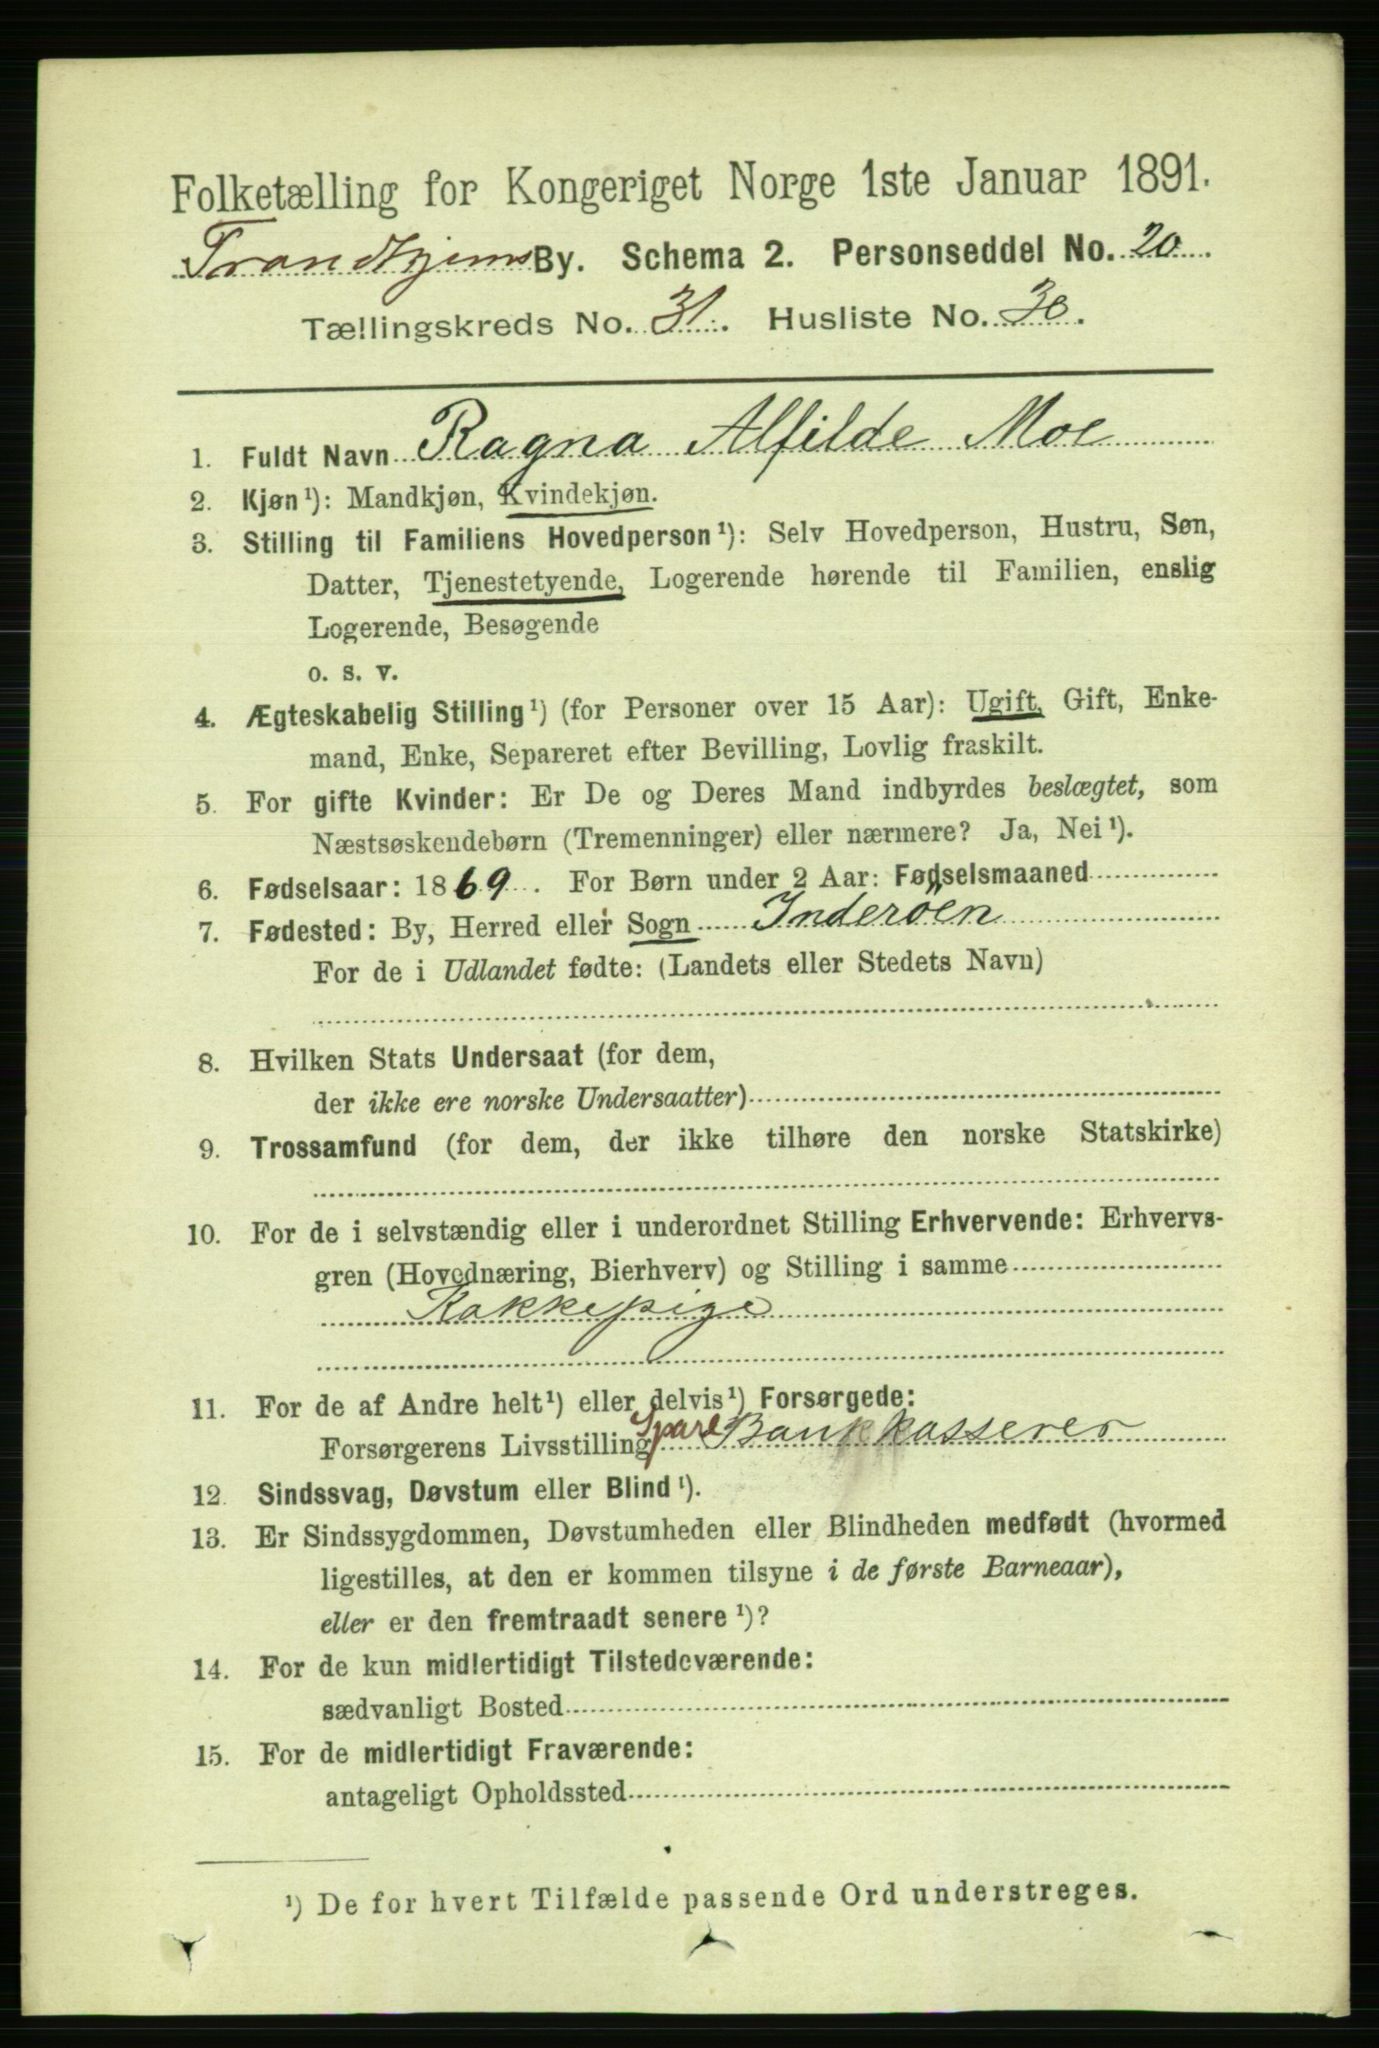 Folketælling for Kongeriget Norge 1ste Januar 1891.
Trondhjems By. Schema 2. Personseddel No. 20
Tællingskreds No. 31. Husliste No. 30.
1. Fuldt Navn Ragna Alfilde Moe
2. Kjøn¹): Mandkjøn, Kvindekjøn.
3. Stilling til Familiens Hovedperson¹): Selv Hovedperson, Hustru, Søn,
Datter, Tjenestetyende, Logerende hørende til Familien, enslig
Logerende, Besøgende
o. s. v.
4. Ægteskabelig Stilling¹) (for Personer over 15 Aar): Ugift, Gift, Enke-
mand, Enke, Separeret efter Bevilling, Lovlig fraskilt.
5. For gifte Kvinder: Er De og Deres Mand indbyrdes beslægtet, som
Næstsøskendebørn (Tremenninger) eller nærmere? Ja, Nei¹).
6. Fødselsaar: 1869. For Børn under 2 Aar: Fødselsmaaned
7. Fødested: By, Herred eller Sogn Inderöen
For de i Udlandet fødte: (Landets eller Stedets Navn)
8. Hvilken Stats Undersaat (for dem,
der ikke ere norske Undersaatter)
9. Trossamfund (for dem, der ikke tilhøre den norske Statskirke)
10. For de i selvstændig eller i underordnet Stilling Erhvervende: Erhvervs-
gren (Hovednæring, Bierhverv) og Stilling i samme
Kokkepige
11. For de af Andre helt¹) eller delvis¹) Forsørgede:
Forsørgerens Livsstilling Spare Bankkasserer
12. Sindssvag, Døvstum eller Blind¹).
13. Er Sindssygdommen, Døvstumheden eller Blindheden medfødt (hvormed
ligestilles, at den er kommen tilsyne i de første Barneaar),
eller er den fremtraadt senere¹)?
14. For de kun midlertidigt Tilstedeværende:
sædvanligt Bosted
15. For de midlertidigt Fraværende:
antageligt Opholdssted
¹) De for hvert Tilfælde passende Ord understreges.